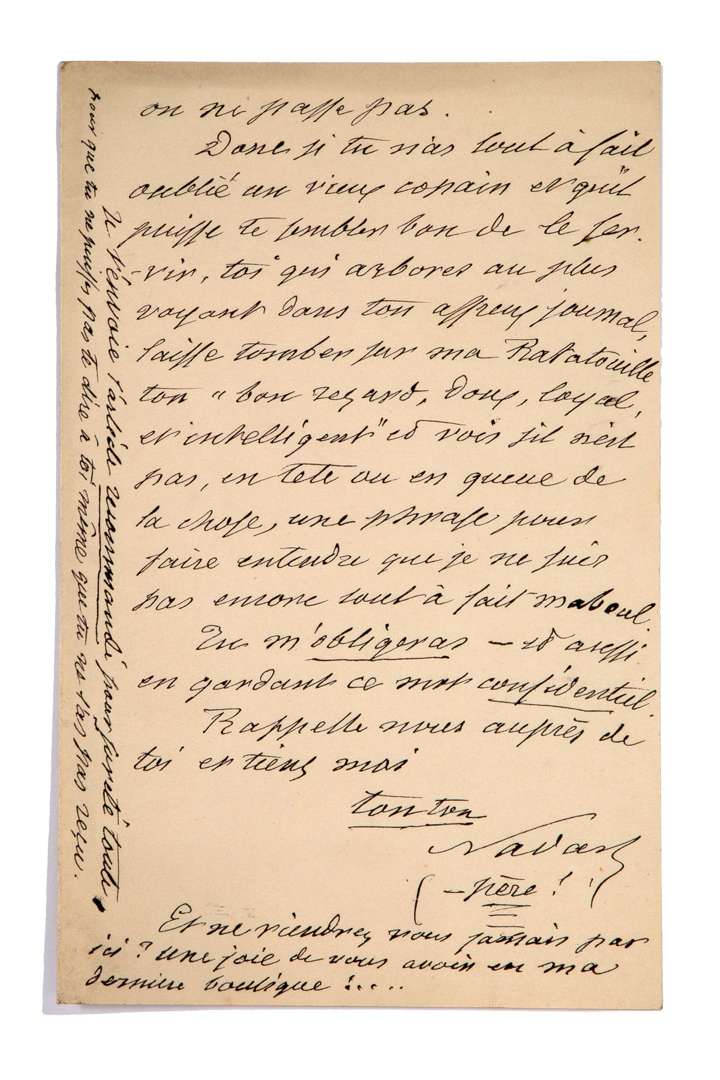 on ne passe pas.
Donc, si tu n'as tout à fait
oublié un vieux copain et qu'il
puisse te sembler bon de le ser-
-vir, toi qui arbores au plus
voyant dans ton affreux journal,
laisse tomber sur ma Ratatouille
ton "bon regard, doux, loyal,
et intelligent" et vois s'il n'est
pas, en tete ou en queue de
la chose, une phrase pour
faire entendre que je ne suis
pas encore tout à fait maboul.
Tu m'obligeras — et aussi
en gardant ce mot confidentiel.
Rappelle nous auprès de
toi et tiens moi
ton ton
Nadar
(— père !)
Et ne viendrez vous jamais par
ici ? Une joie de vous avoir en ma
dernière boutique !....
Je t'envoie l'article recommandé pour sureté toute
pour que tu ne puisses pas te dire à toi même que tu ne l'as pas reçu.